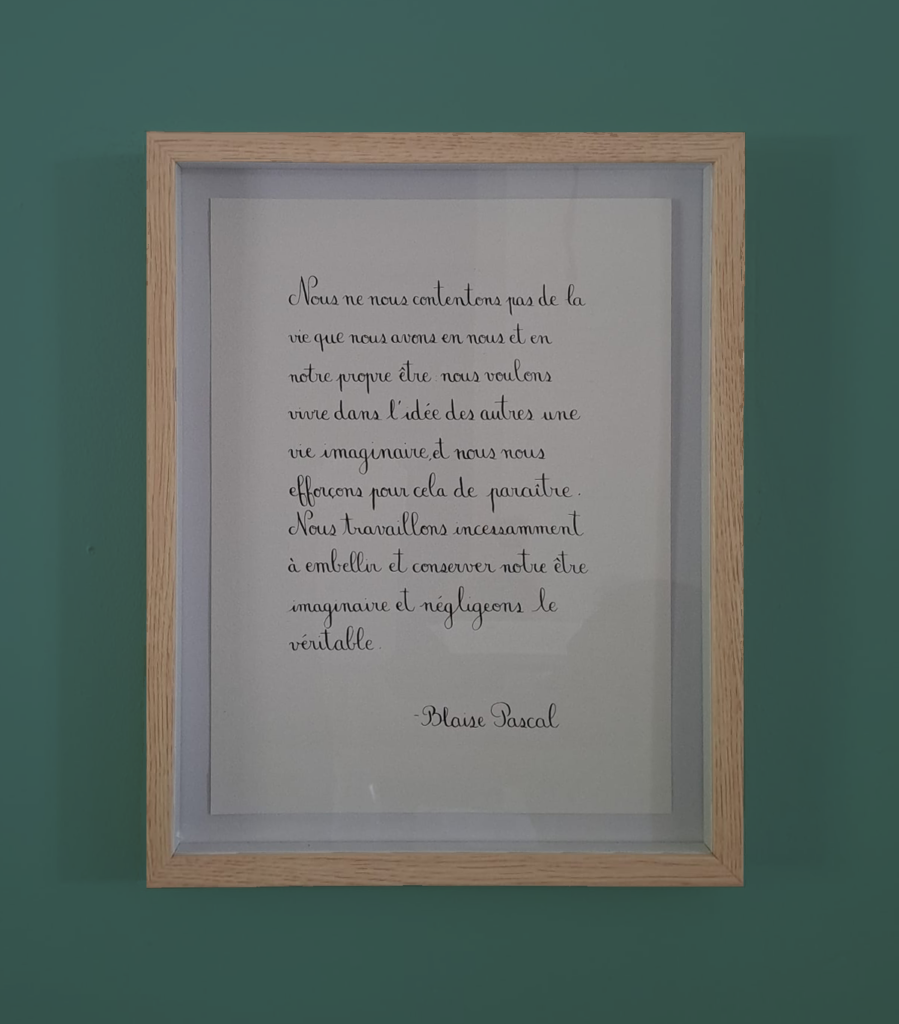 Nous ne nous contentons pas de la
vie que nous avons en nous et en
notre propre être nous voulons
vivre dans l'idée des autres une
vie imaginaire, et nous nous
efforçons pour cela de paraître.
Nous travaillons incessamment
à embellir et conserver notre être
imaginaire et négligeons le
véritable.
-Blaise Pascal